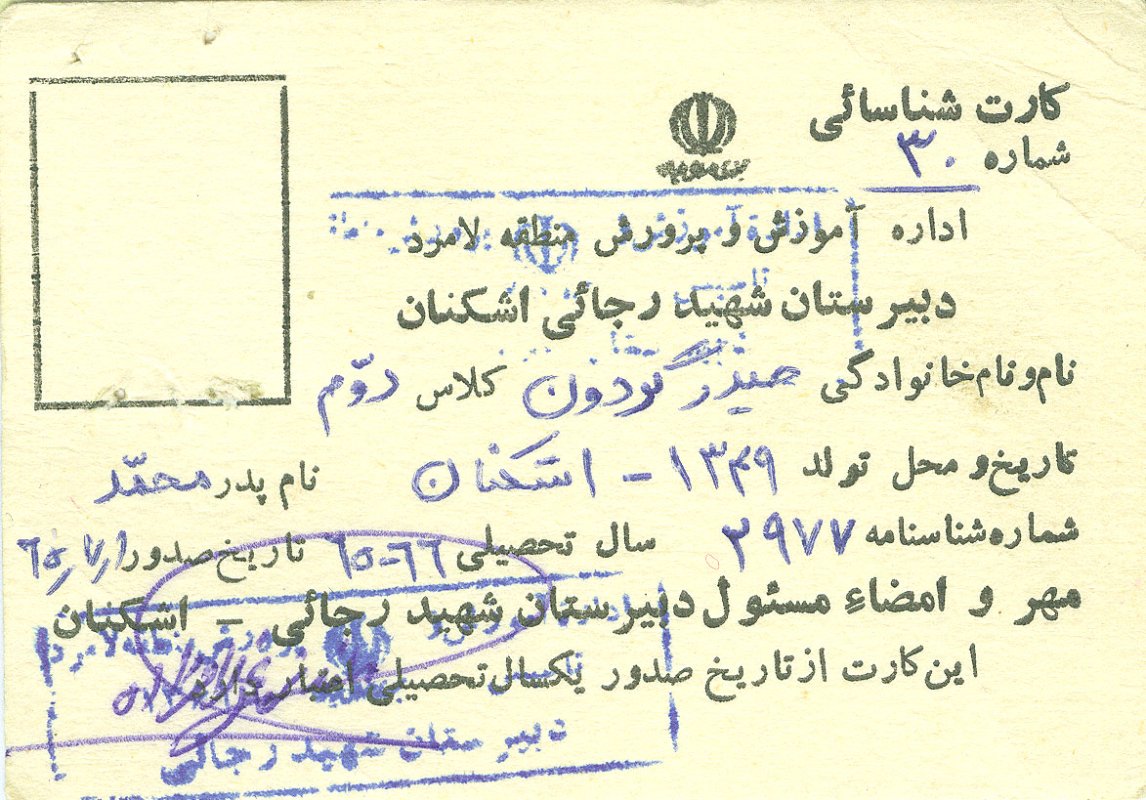 کارت شناسائی
شماره ۳۰
اداره آموزش و پرورش منطقه لامرد
دبیرستان شهید رجائی اشکنان
نام و نام خانوادگی حیدر گردون کلاس دوّم
تاریخ و محل تولد ۱۳۴۹ - اشکنان
نام پدر محمّد
شماره شناسنامه ۲۹۷۷ سال تحصیلی ۶۵-۶۶ تاریخ صدور ۶۵٫۷٫۱
مهر و امضاءِ مسئول دبیرستان شهید رجائی - اشکنان
این کارت از تاریخ صدور یکسال تحصیلی اعتبار دارد
دبیرستان شهید رجائی